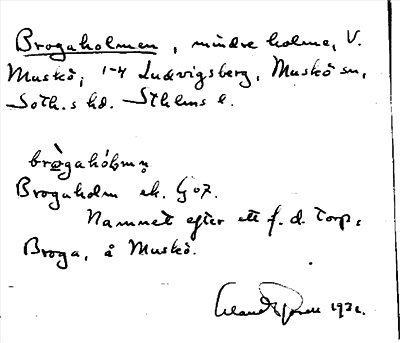 Brogaholmen, mindre holme, V.
Muskö; 1-4 Ludvigsberg, Muskö sn,
Soth.s hd. Sthlms l.
brògahól̥mn̥
Brogaholm ek. G 07.
Namnet efter ett f. d. torp,
Broga, å Muskö.
1932.